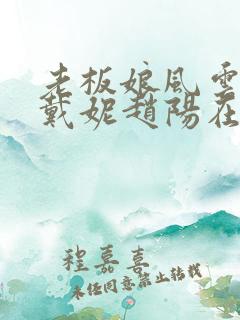 老板娘風雲
戴妮趙陽在
程嘉喜
未经同意禁止转载